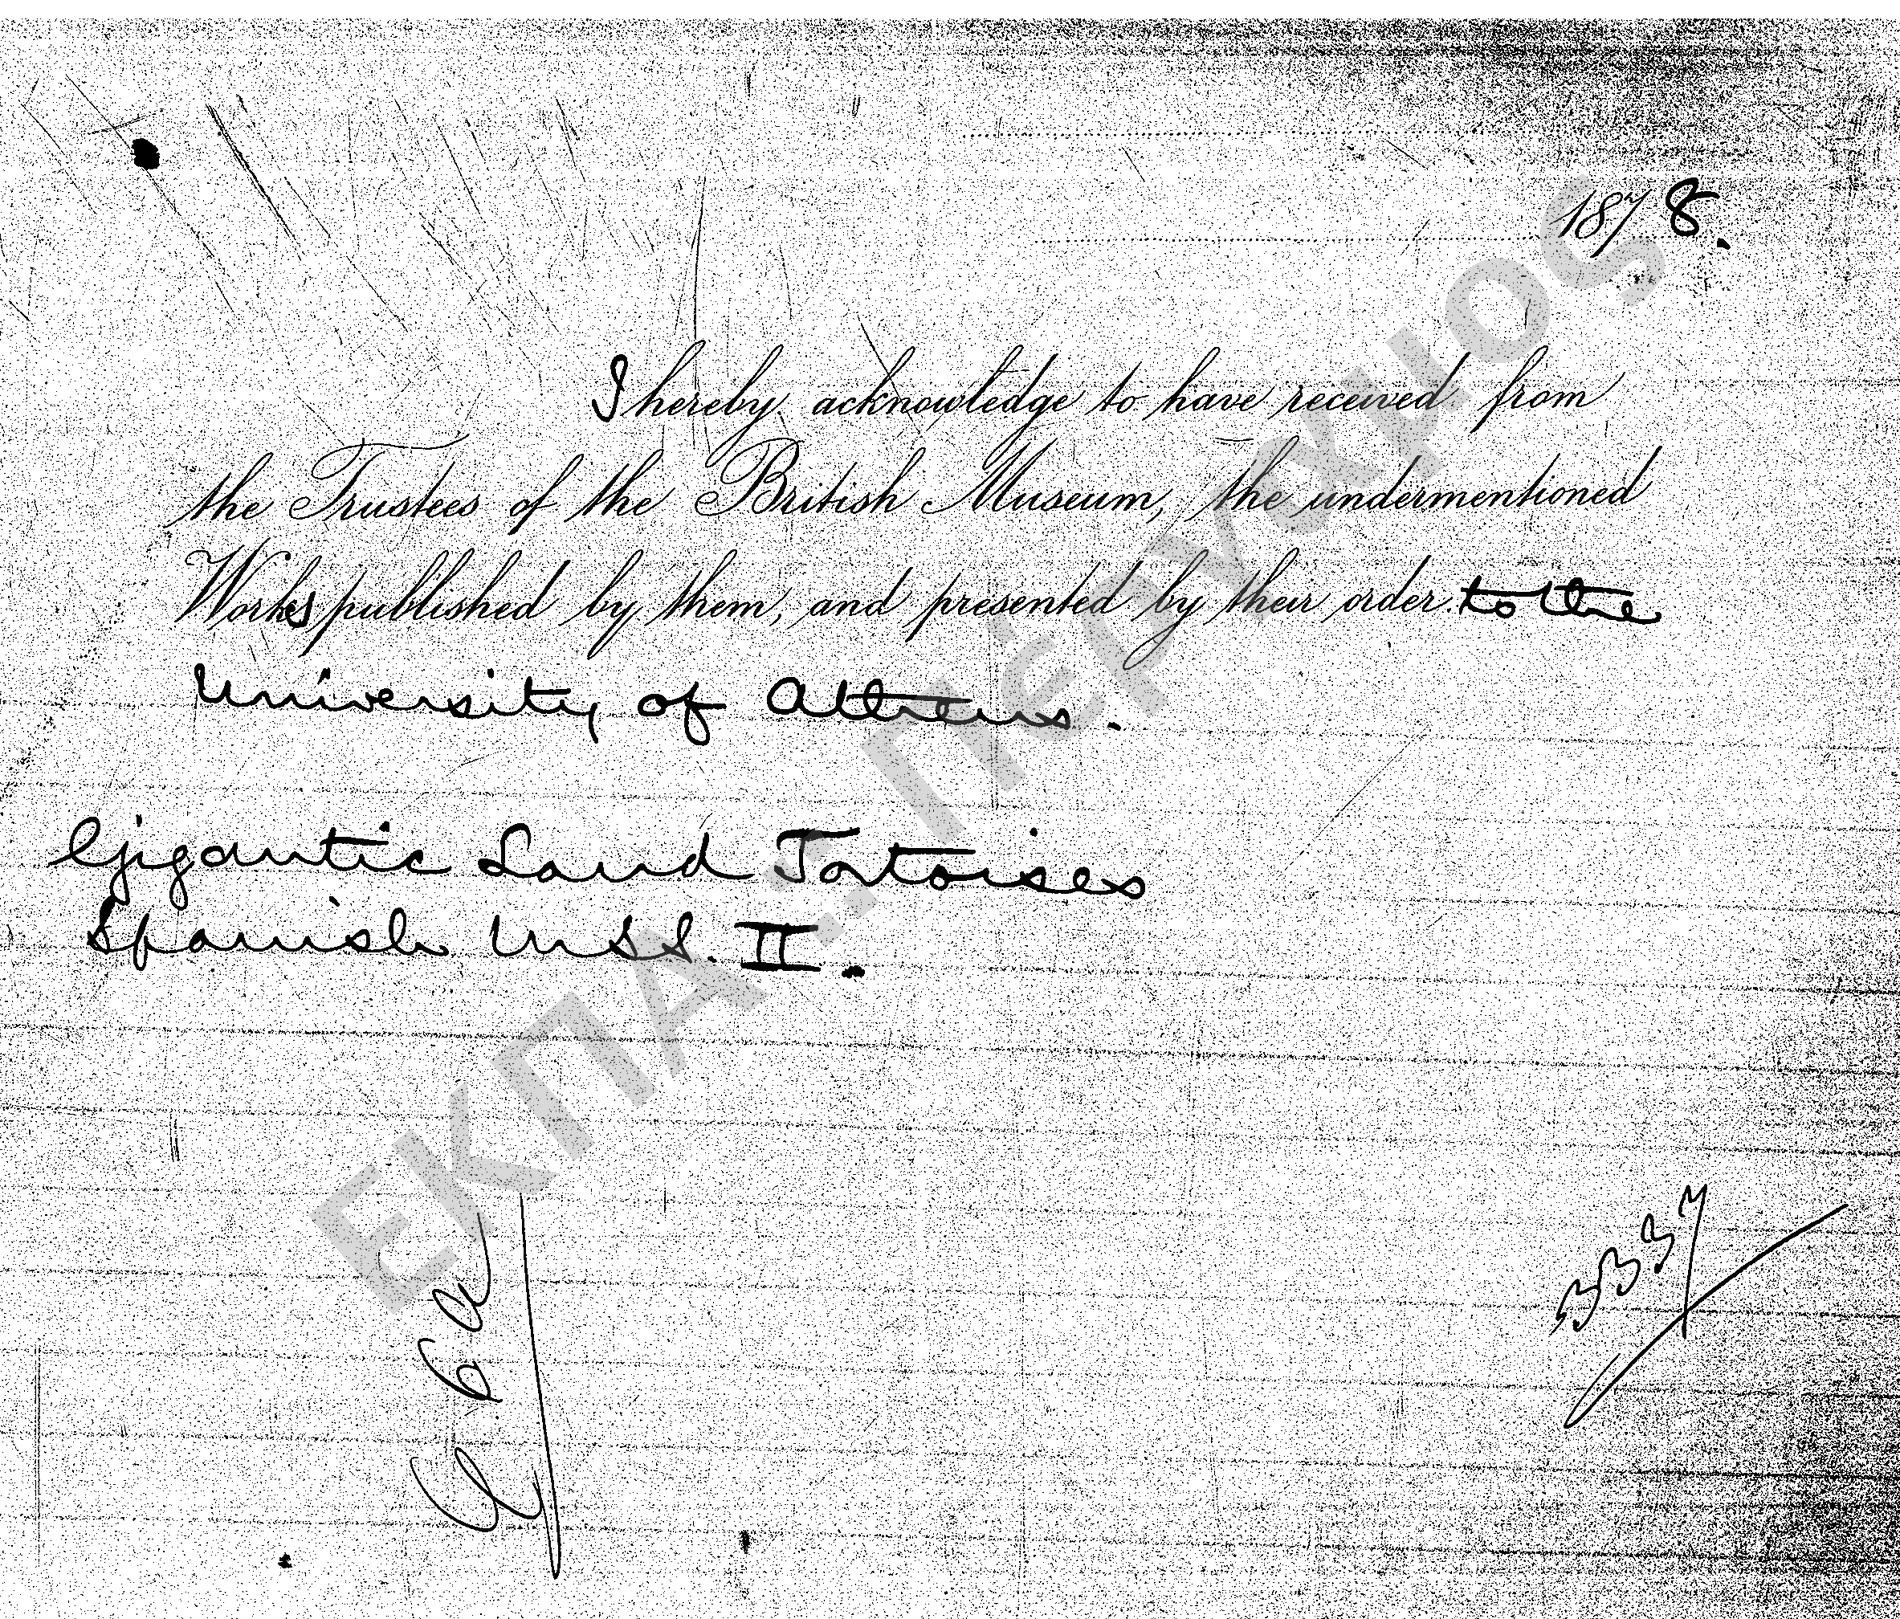 1878.
I hereby acknowledge to have received from
the Trustees of the British Museum, the undermentioned
Works published by them, and presented by their order. to the
University of Athens.
Gigantic Land Tortoises
Spanish MSS. II.
ΕΚΠΑ... Πέργαμος